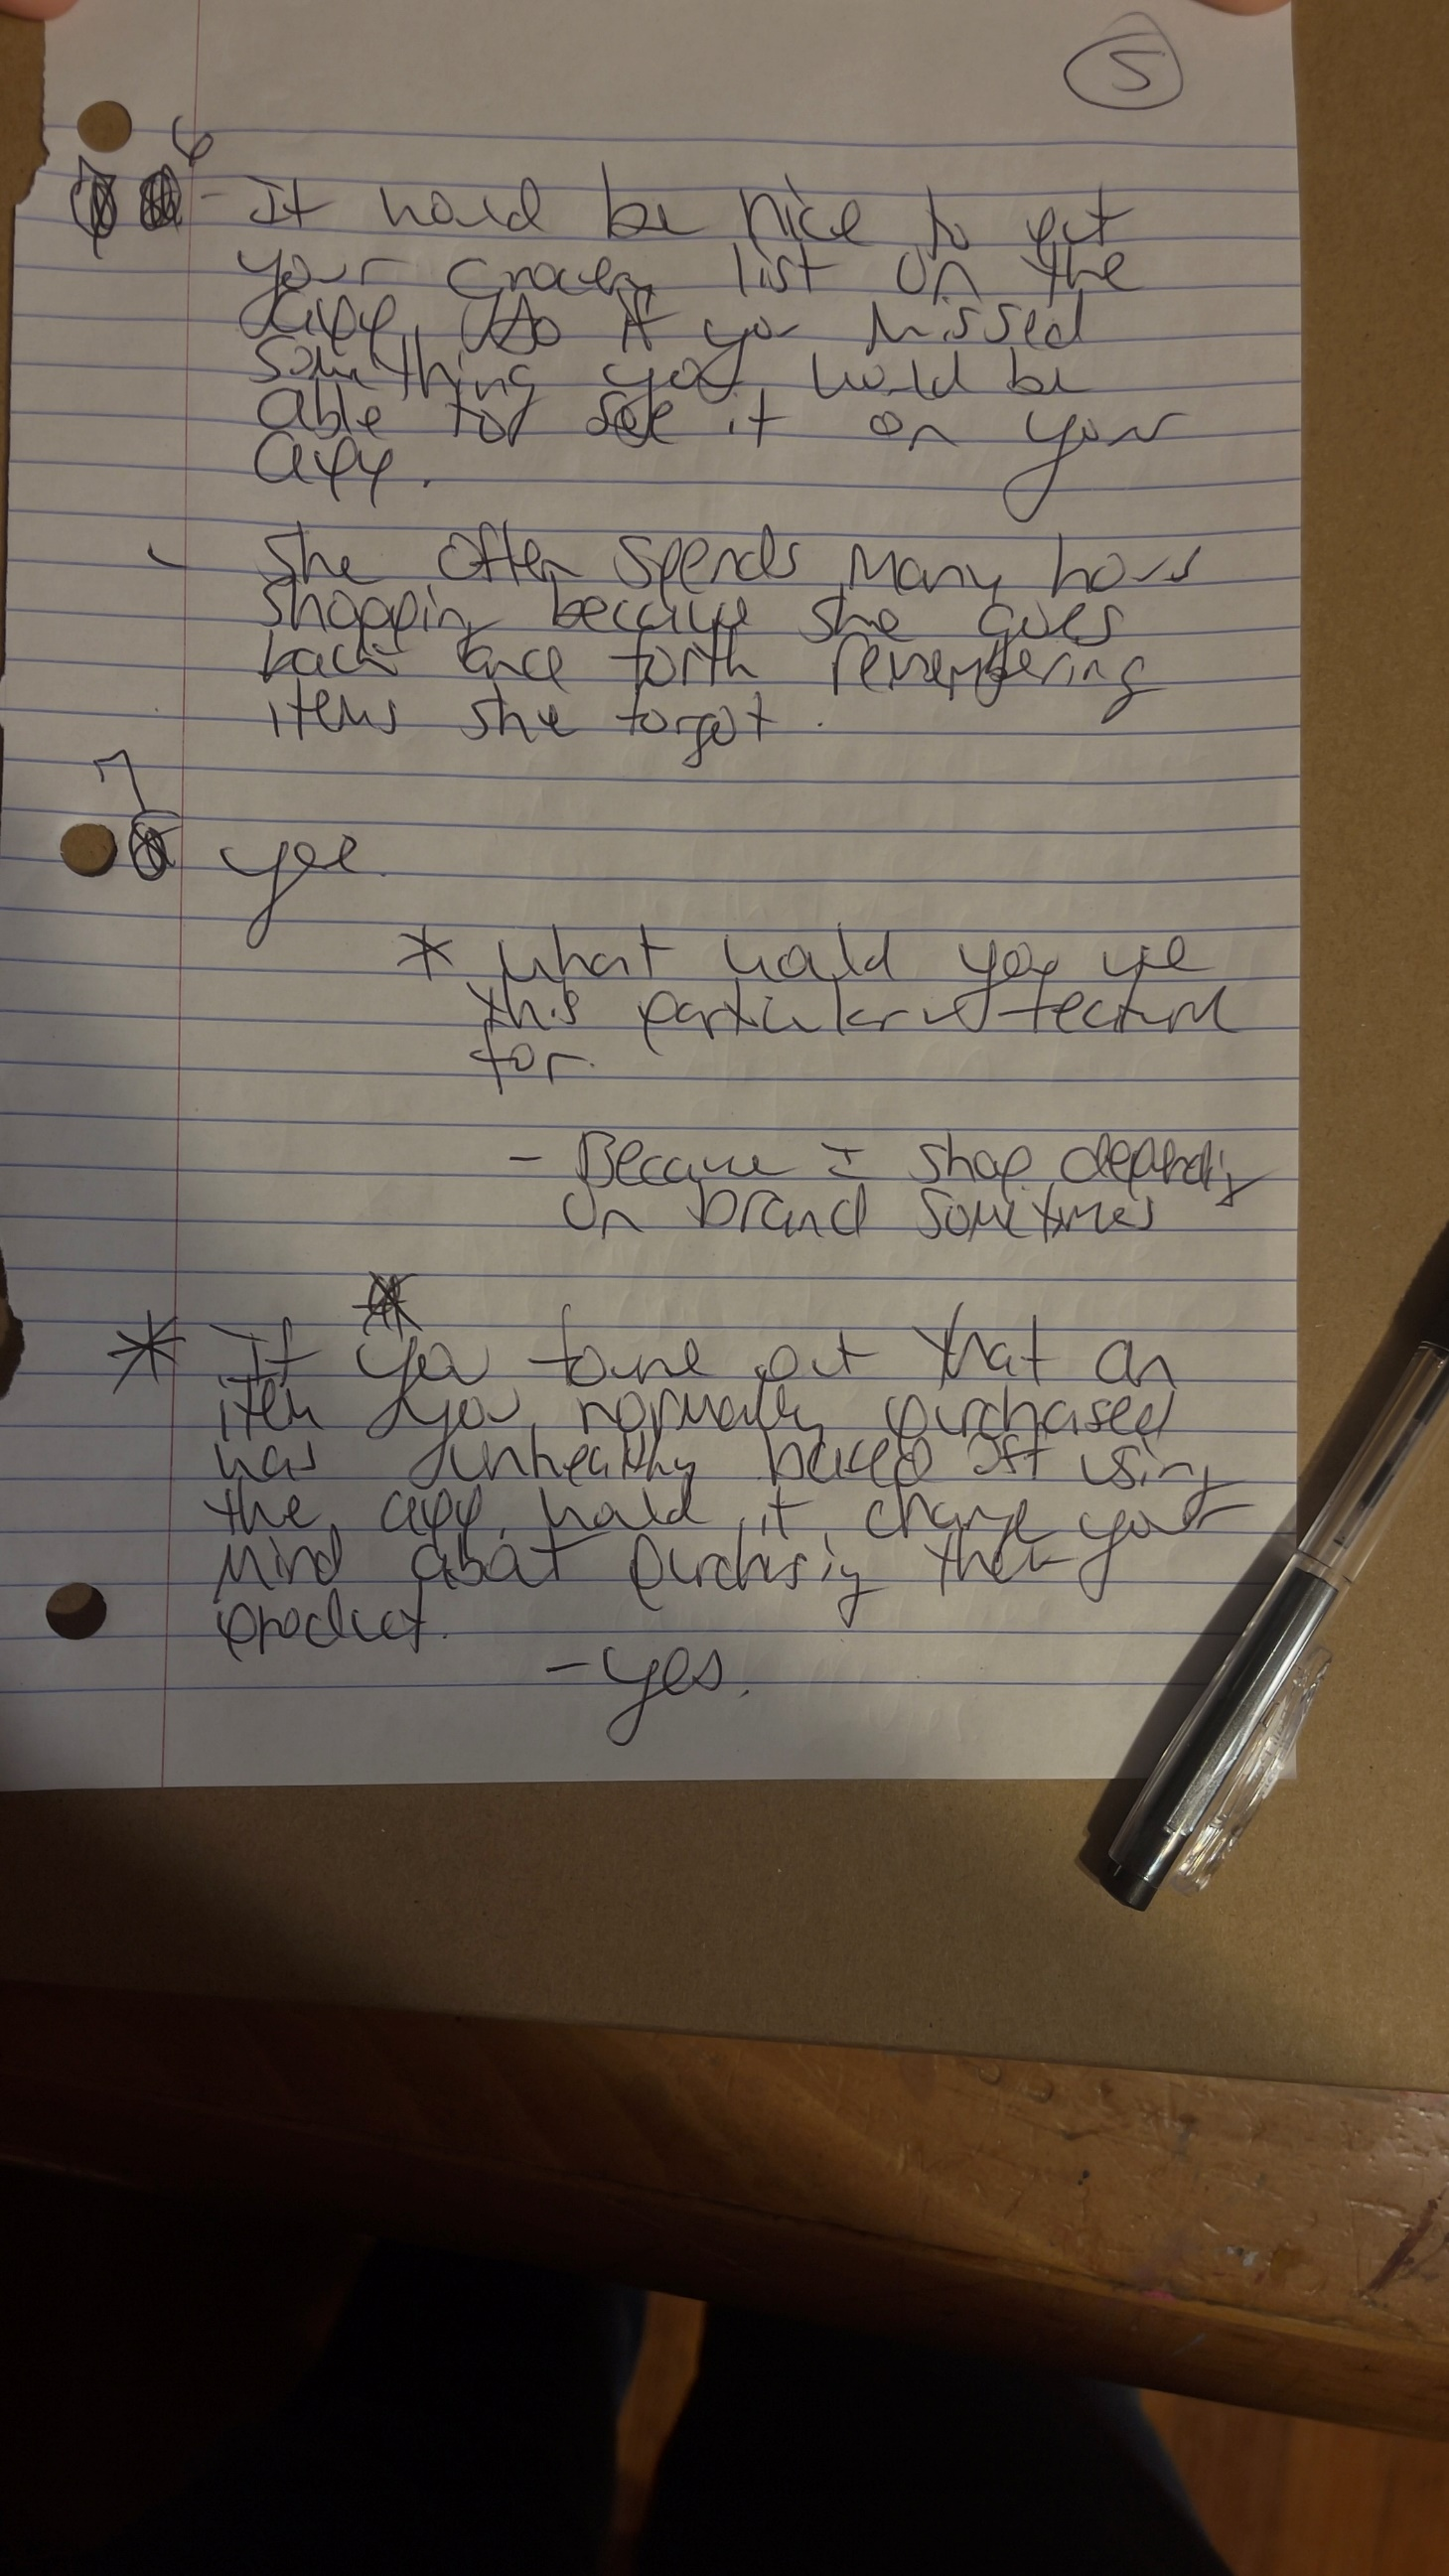 5
6
- It would be nice to put
your Grocery list on the
app. Also if you missed
something you would be
able to see it on your
app.
- She often spends many hours
shopping because she goes
back and forth remembering
items she forgot.
7
yes.
* what would you use
this particular feature
for.
- Because I shop depending
on brand sometimes
* If you found out that an
item you normally purchased
was unhealthy based off using
the app, would it change your
mind about purchasing their
product.
- yes.